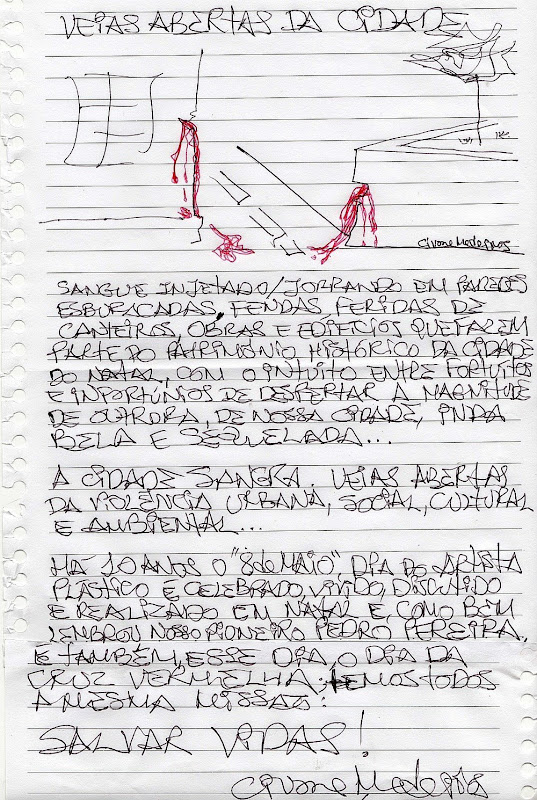 VEIAS ABERTAS DA CIDADE
Civone Medeiros
SANGUE INJETADO/JORRANDO EM PAREDES
ESBURACADAS, FENDAS, FERIDAS DE
CANTEIROS, OBRAS E EDIFÍCIOS QUE FAZEM
PARTE DO PATRIMÔNIO HISTÓRICO DA CIDADE
DO NATAL, COM O INTUITO ENTRE FORTUITOS
E INPORTÚNIOS DE DESPERTAR A MAGNITUDE
DE OUTRORA, DE NOSSA CIDADE, INDA
BELA E SEQUELADA...
A CIDADE SANGRA. VEIAS ABERTAS
DA VIOLÊNCIA URBANA, SOCIAL, CULTURAL
E AMBIENTAL...
HÁ 10 ANOS O "8 de MAIO", DIA DO ARTISTA
PLÁSTICO É CELEBRADO, VIVIDO, DISCUTIDO
E REALIZADO EM NATAL E, COMO BEM
LEMBROU NOSSO PIONEIRO PEDRO PEREIRA,
É TAMBÉM, ESSE DIA, O DIA DA
CRUZ VERMELHA; TEMOS TODOS
A MESMA MISSÃO:
SALVAR VIDAS!
Civone Medeiros